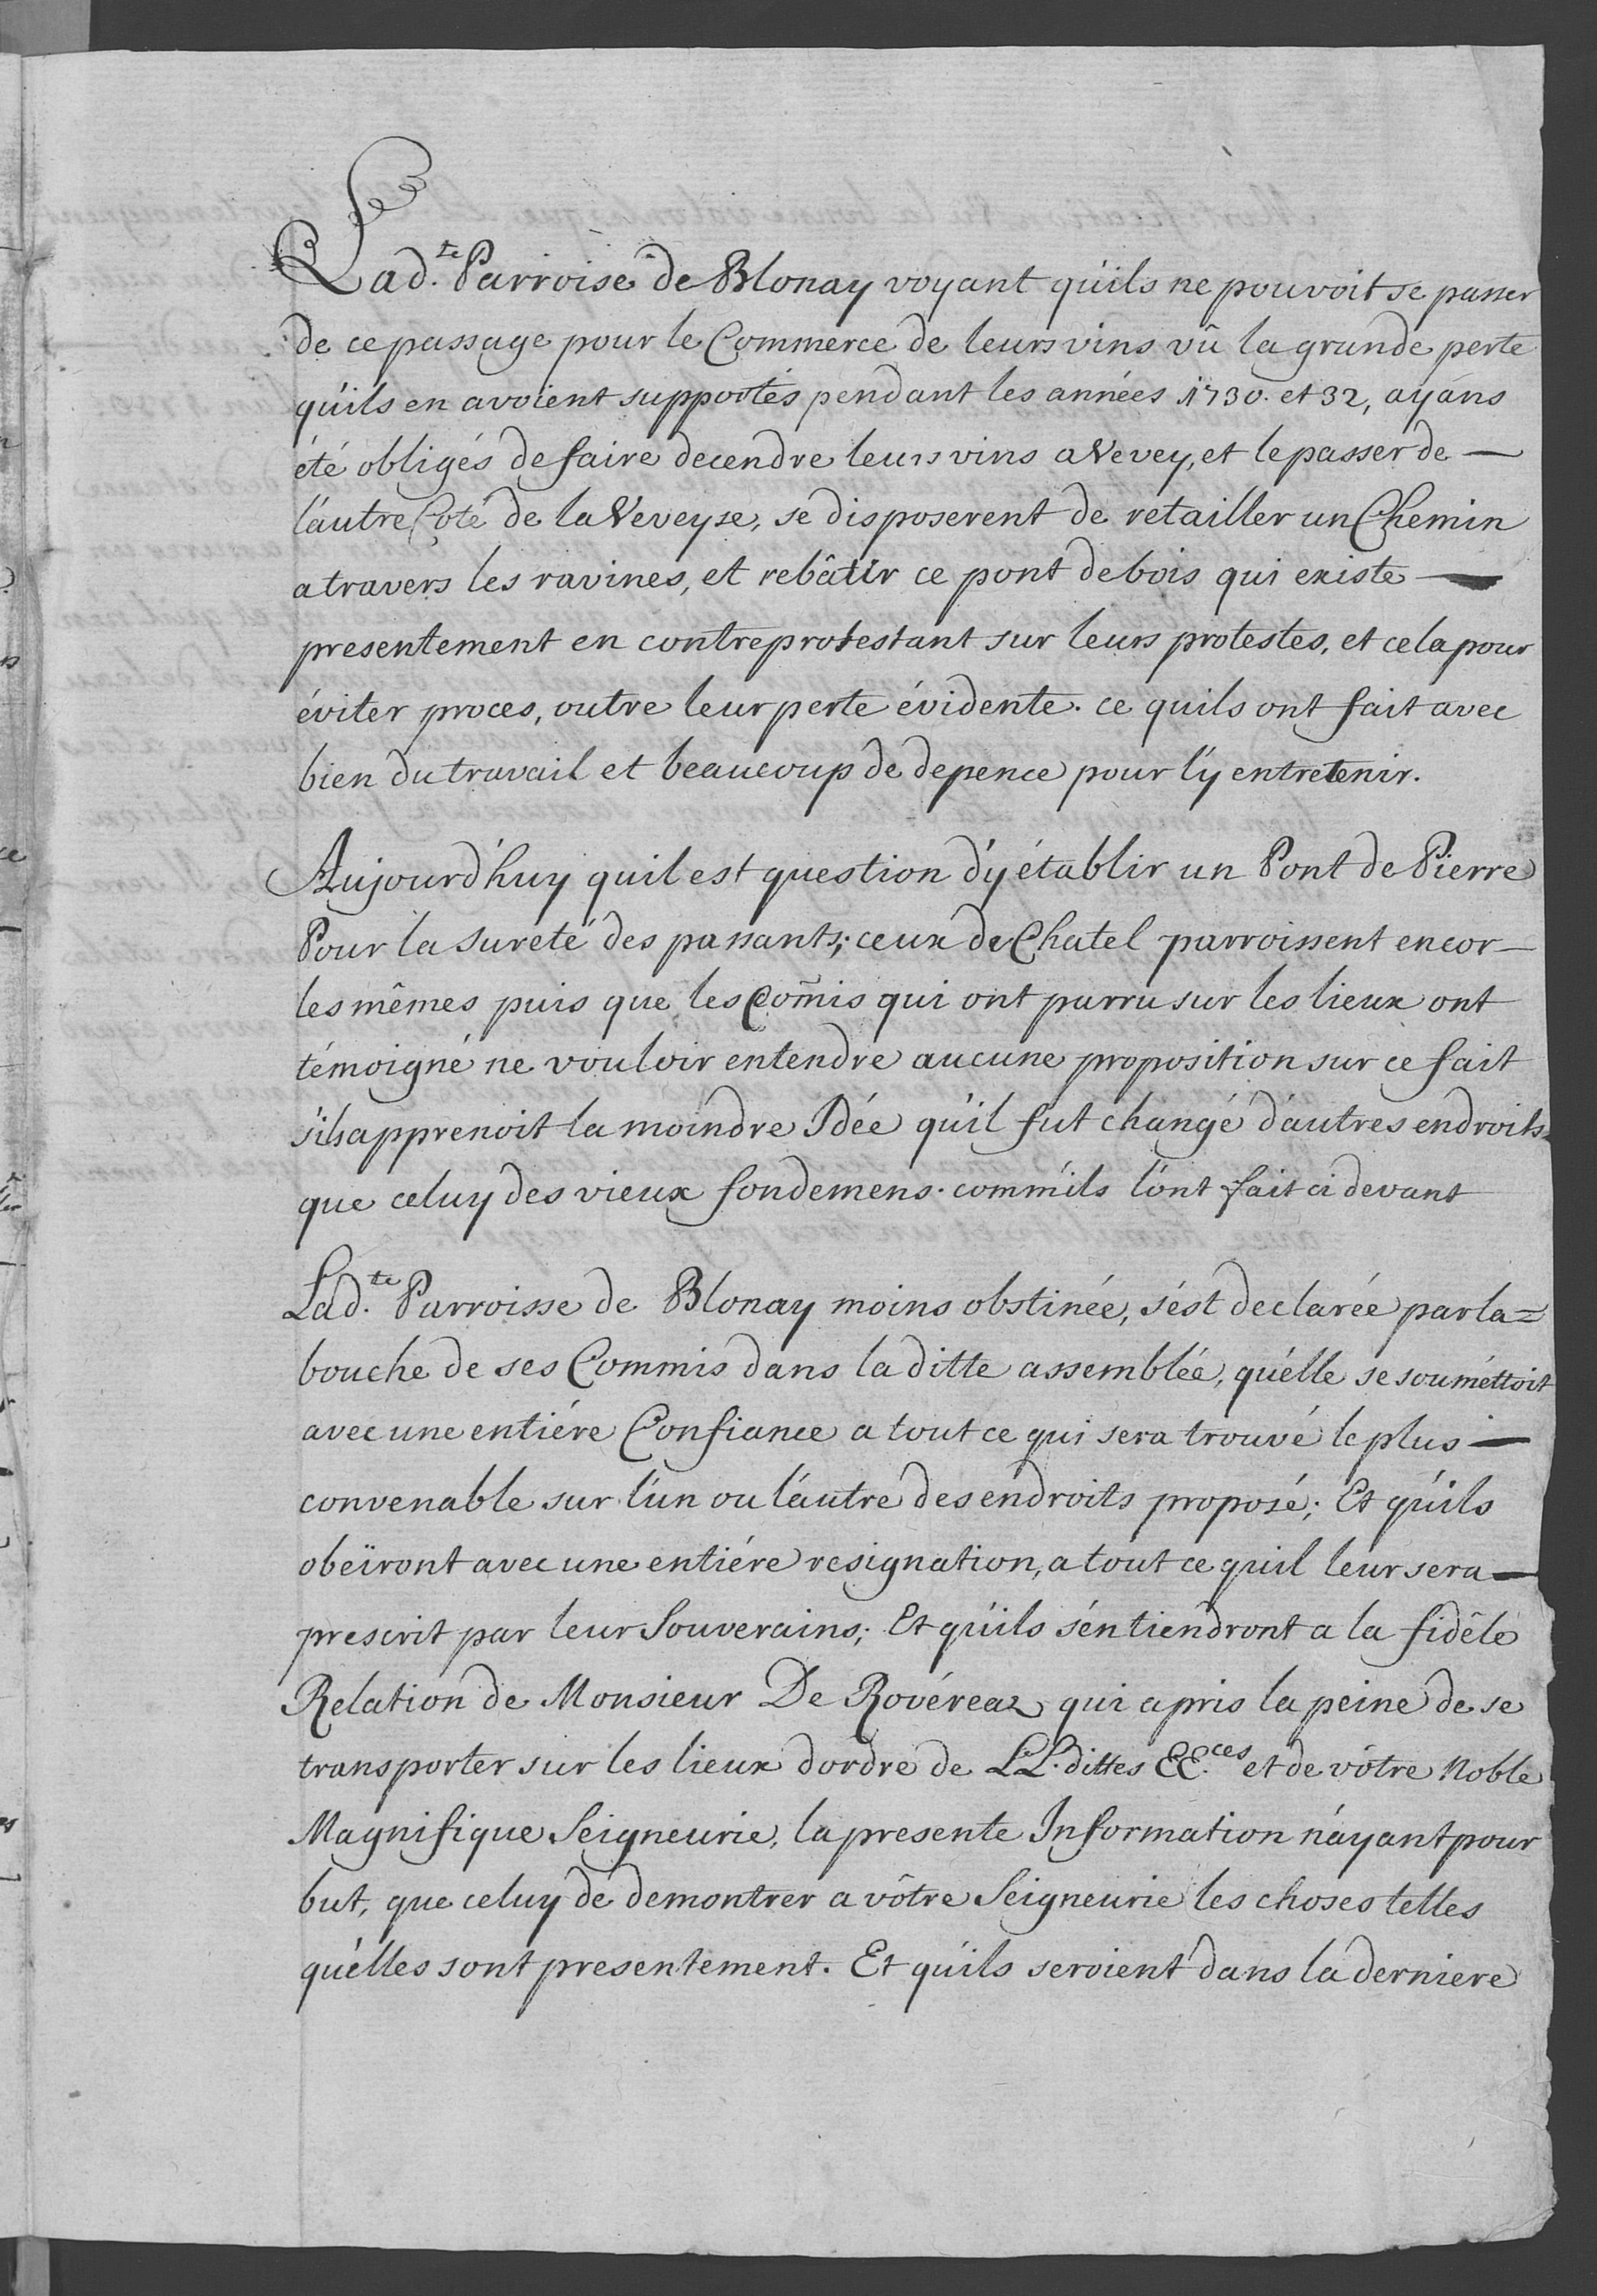 Lad.te Parroise de Blonay voyant qu'ils ne pouvoit se passer
de ce passage pour le Commerce de leurs vins vû la grande perte
qu'ils en avoient supportés pendant les années 1730. et 32, ayans
été obligés de faire decendre leurs vins a Vevey, et le passer de —
l'autre Coté de la Veveyse, se disposerent de retailler un Chemin
a travers les ravines, et rebâtir ce pont de bois qui existe —
presentement en contreprotestant sur leurs protestes, et cela pour
éviter proces, outre leur perte évidente. ce quils ont fait avec
bien du travail et beaucoup de depence pour l'y entretenir.
Aujourd'huy quil est question d'y établir un Pont de Pierre
Pour la sureté des passants; ceux de Chatel parroissent encor —
les mêmes puis que les Com̃is qui ont parru sur les lieux ont
témoigné ne vouloir entendre aucune proposition sur ce fait
s'ils apprenoit la moindre Idée qu'il fut changé d'autres endroits
que celuy des vieux fondemens. comm'ils l'ont fait ci devant
Lad.te Parroisse de Blonay moins obstinée, s'ést declarée par la=
bouche de ses Commis dans la ditte assemblée, qu'élle se soumèttoit
avec une entiére Confiance a tout ce qui sera trouvé le plus —
convenable sur l'un ou l'autre des endroits proposé; Et qu'ils
obeïront avec une entiére resignation, a tout ce quil leur sera —
prescrit par leur Souverains; Et qu'ils s'en tiendront a la fidêle
Relation de Monsieur De Rovéreaz qui a pris la peine de se
transporter sur les lieux dordre de LL. dittes EE.ces et de vôtre Noble
Magnifique Seigneurie, la presente Information n'ayant pour
but, que celuy de demontrer a vôtre Seigneurie les choses telles
qu'élles sont presentement. Et qu'ils seroient dans la derniere